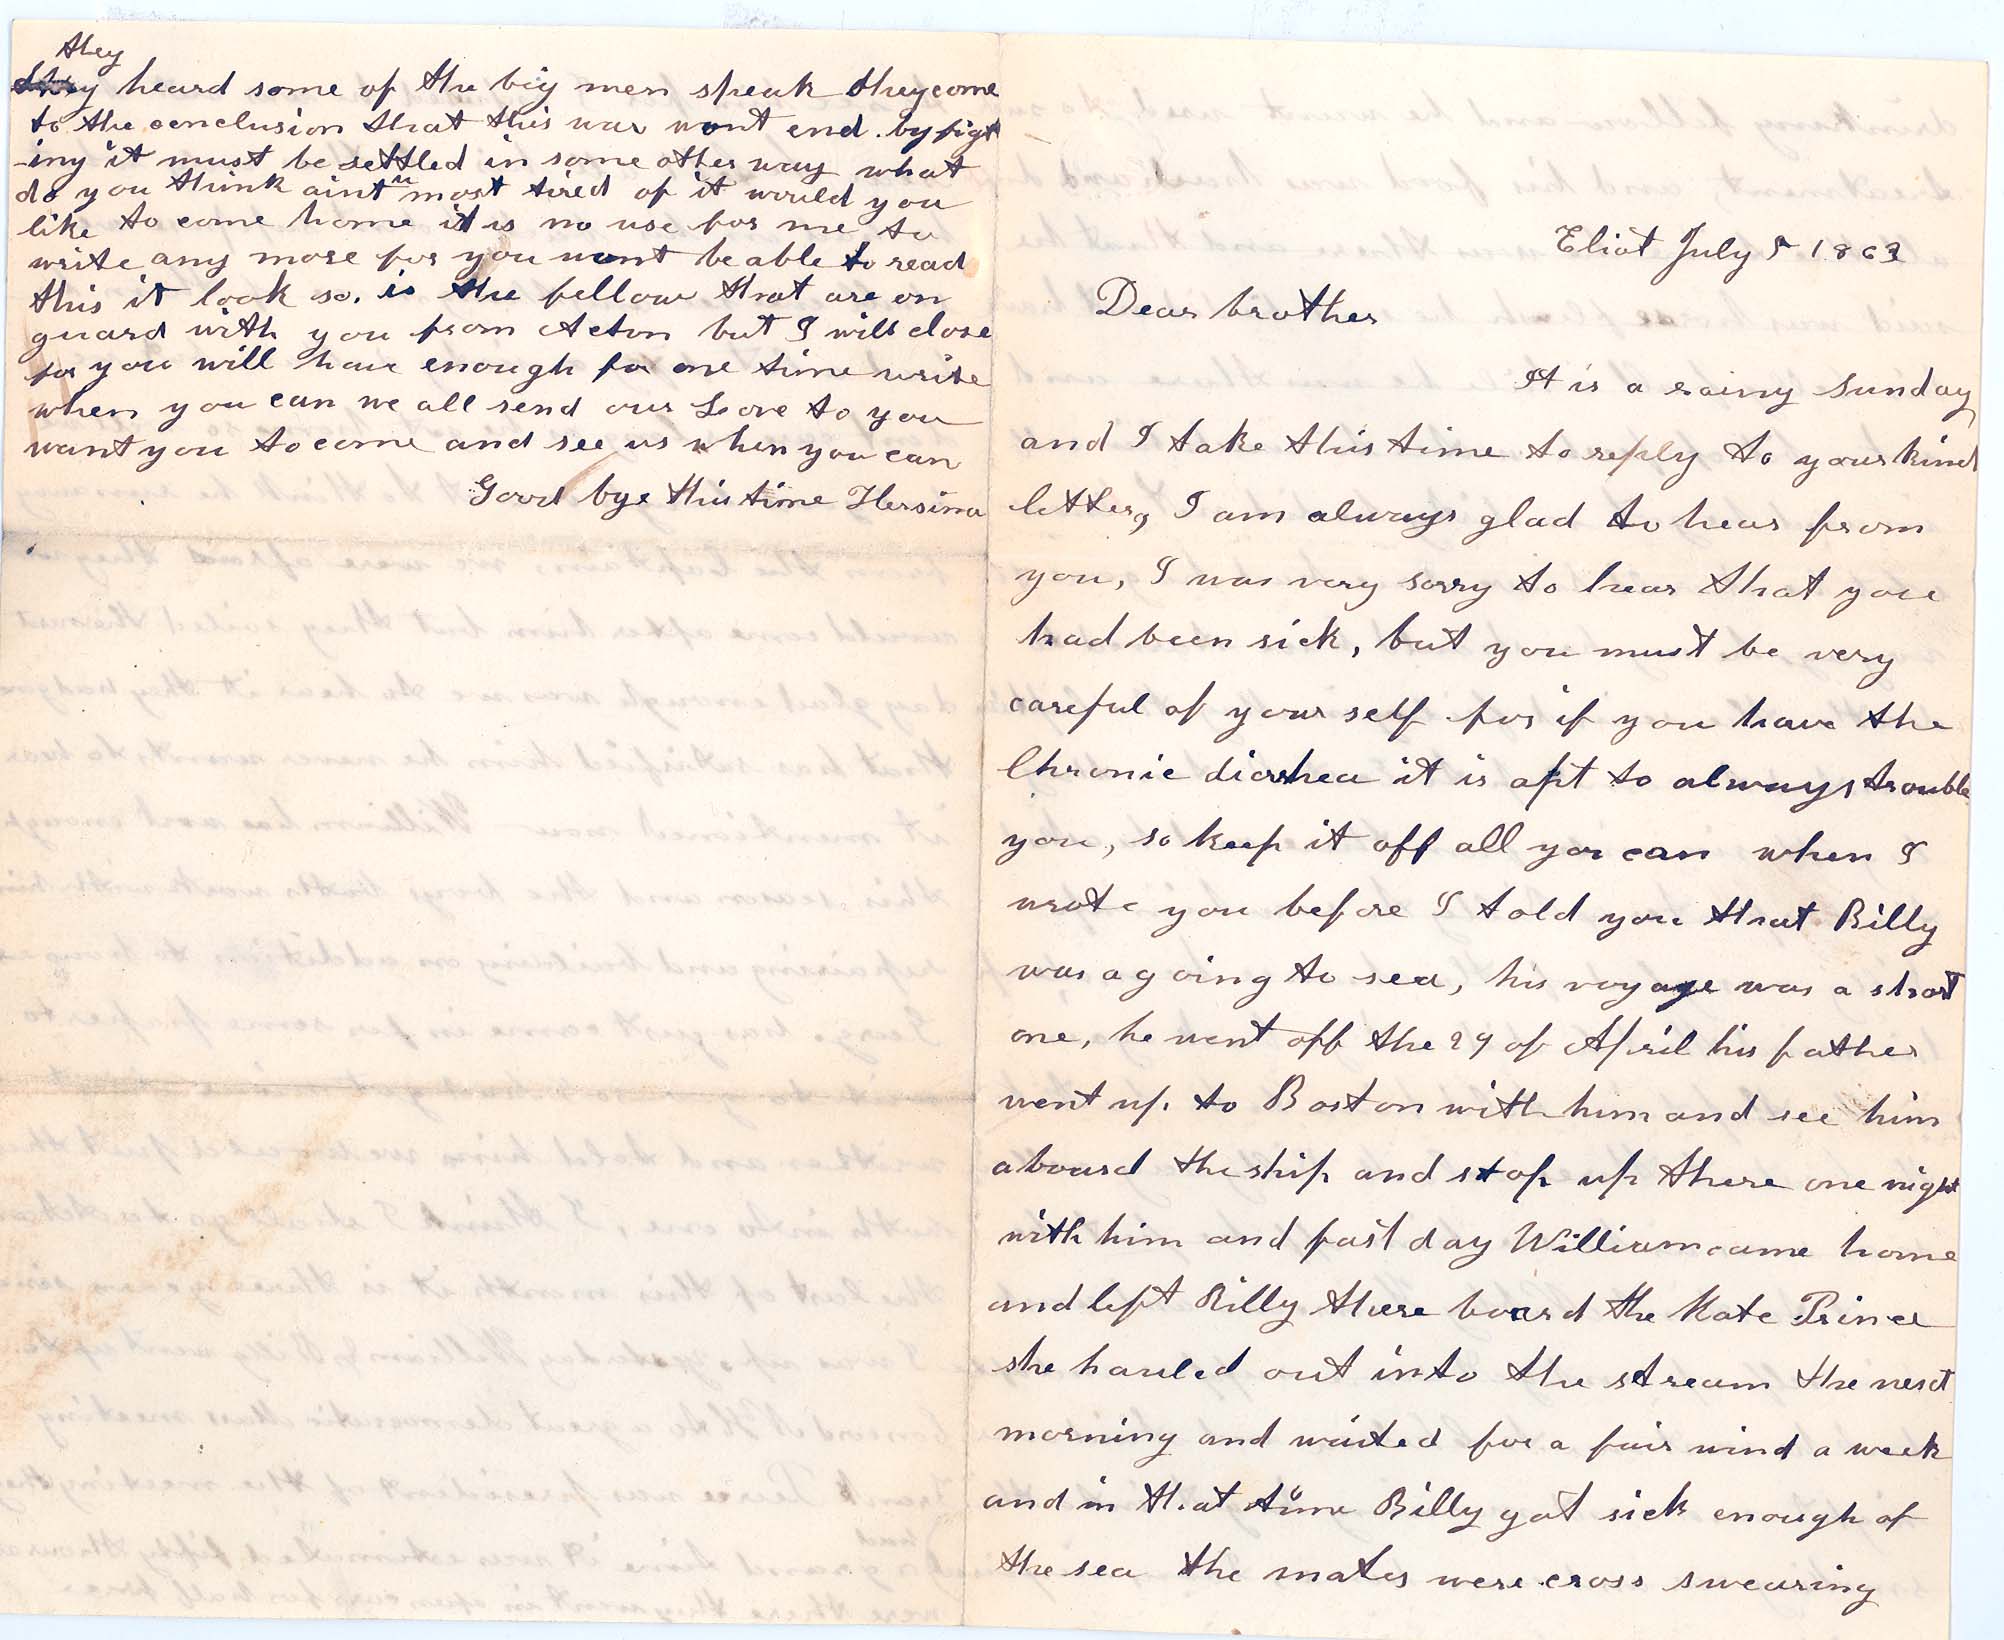 Eliot July 5 1863
Dear brother
It is a rainy Sunday
and I take this time to reply to your kind
letter, I am always glad to hear from
you, I was very sorry to hear that you
had been sick, but you must be very
careful of your self for if you have the
Chronic diarrhea it is apt to always trouble
you, so keep it off all you can when I
wrote you before I told you that Billy
was a going to sea, his voyage was a short
one, he went off the 29 of April his father
went up to Boston with him and see him
aboard the ship and stop up there one night
with him and fast day William came home
and left Billy there board the Kate Prince
she hauled out into the stream the next
morning and waited for a fair wind a week
and in that time Billy got sick enough of
the sea the mates were cross swearing
they
heard some of the big men speak they come
to the conclusion that this war wont end by figt
-ing it must be settled in some other way what
do you think aint u most tired of it would you
like to come home it is no use for me to
write any more for you wont be able to read
this it look so. is the fellow that are on
guard with you from Acton but I will close
for you will have enough for one time write
when you can we all send our Love to you
want you to come and see us when you can
Good bye this time Hersina